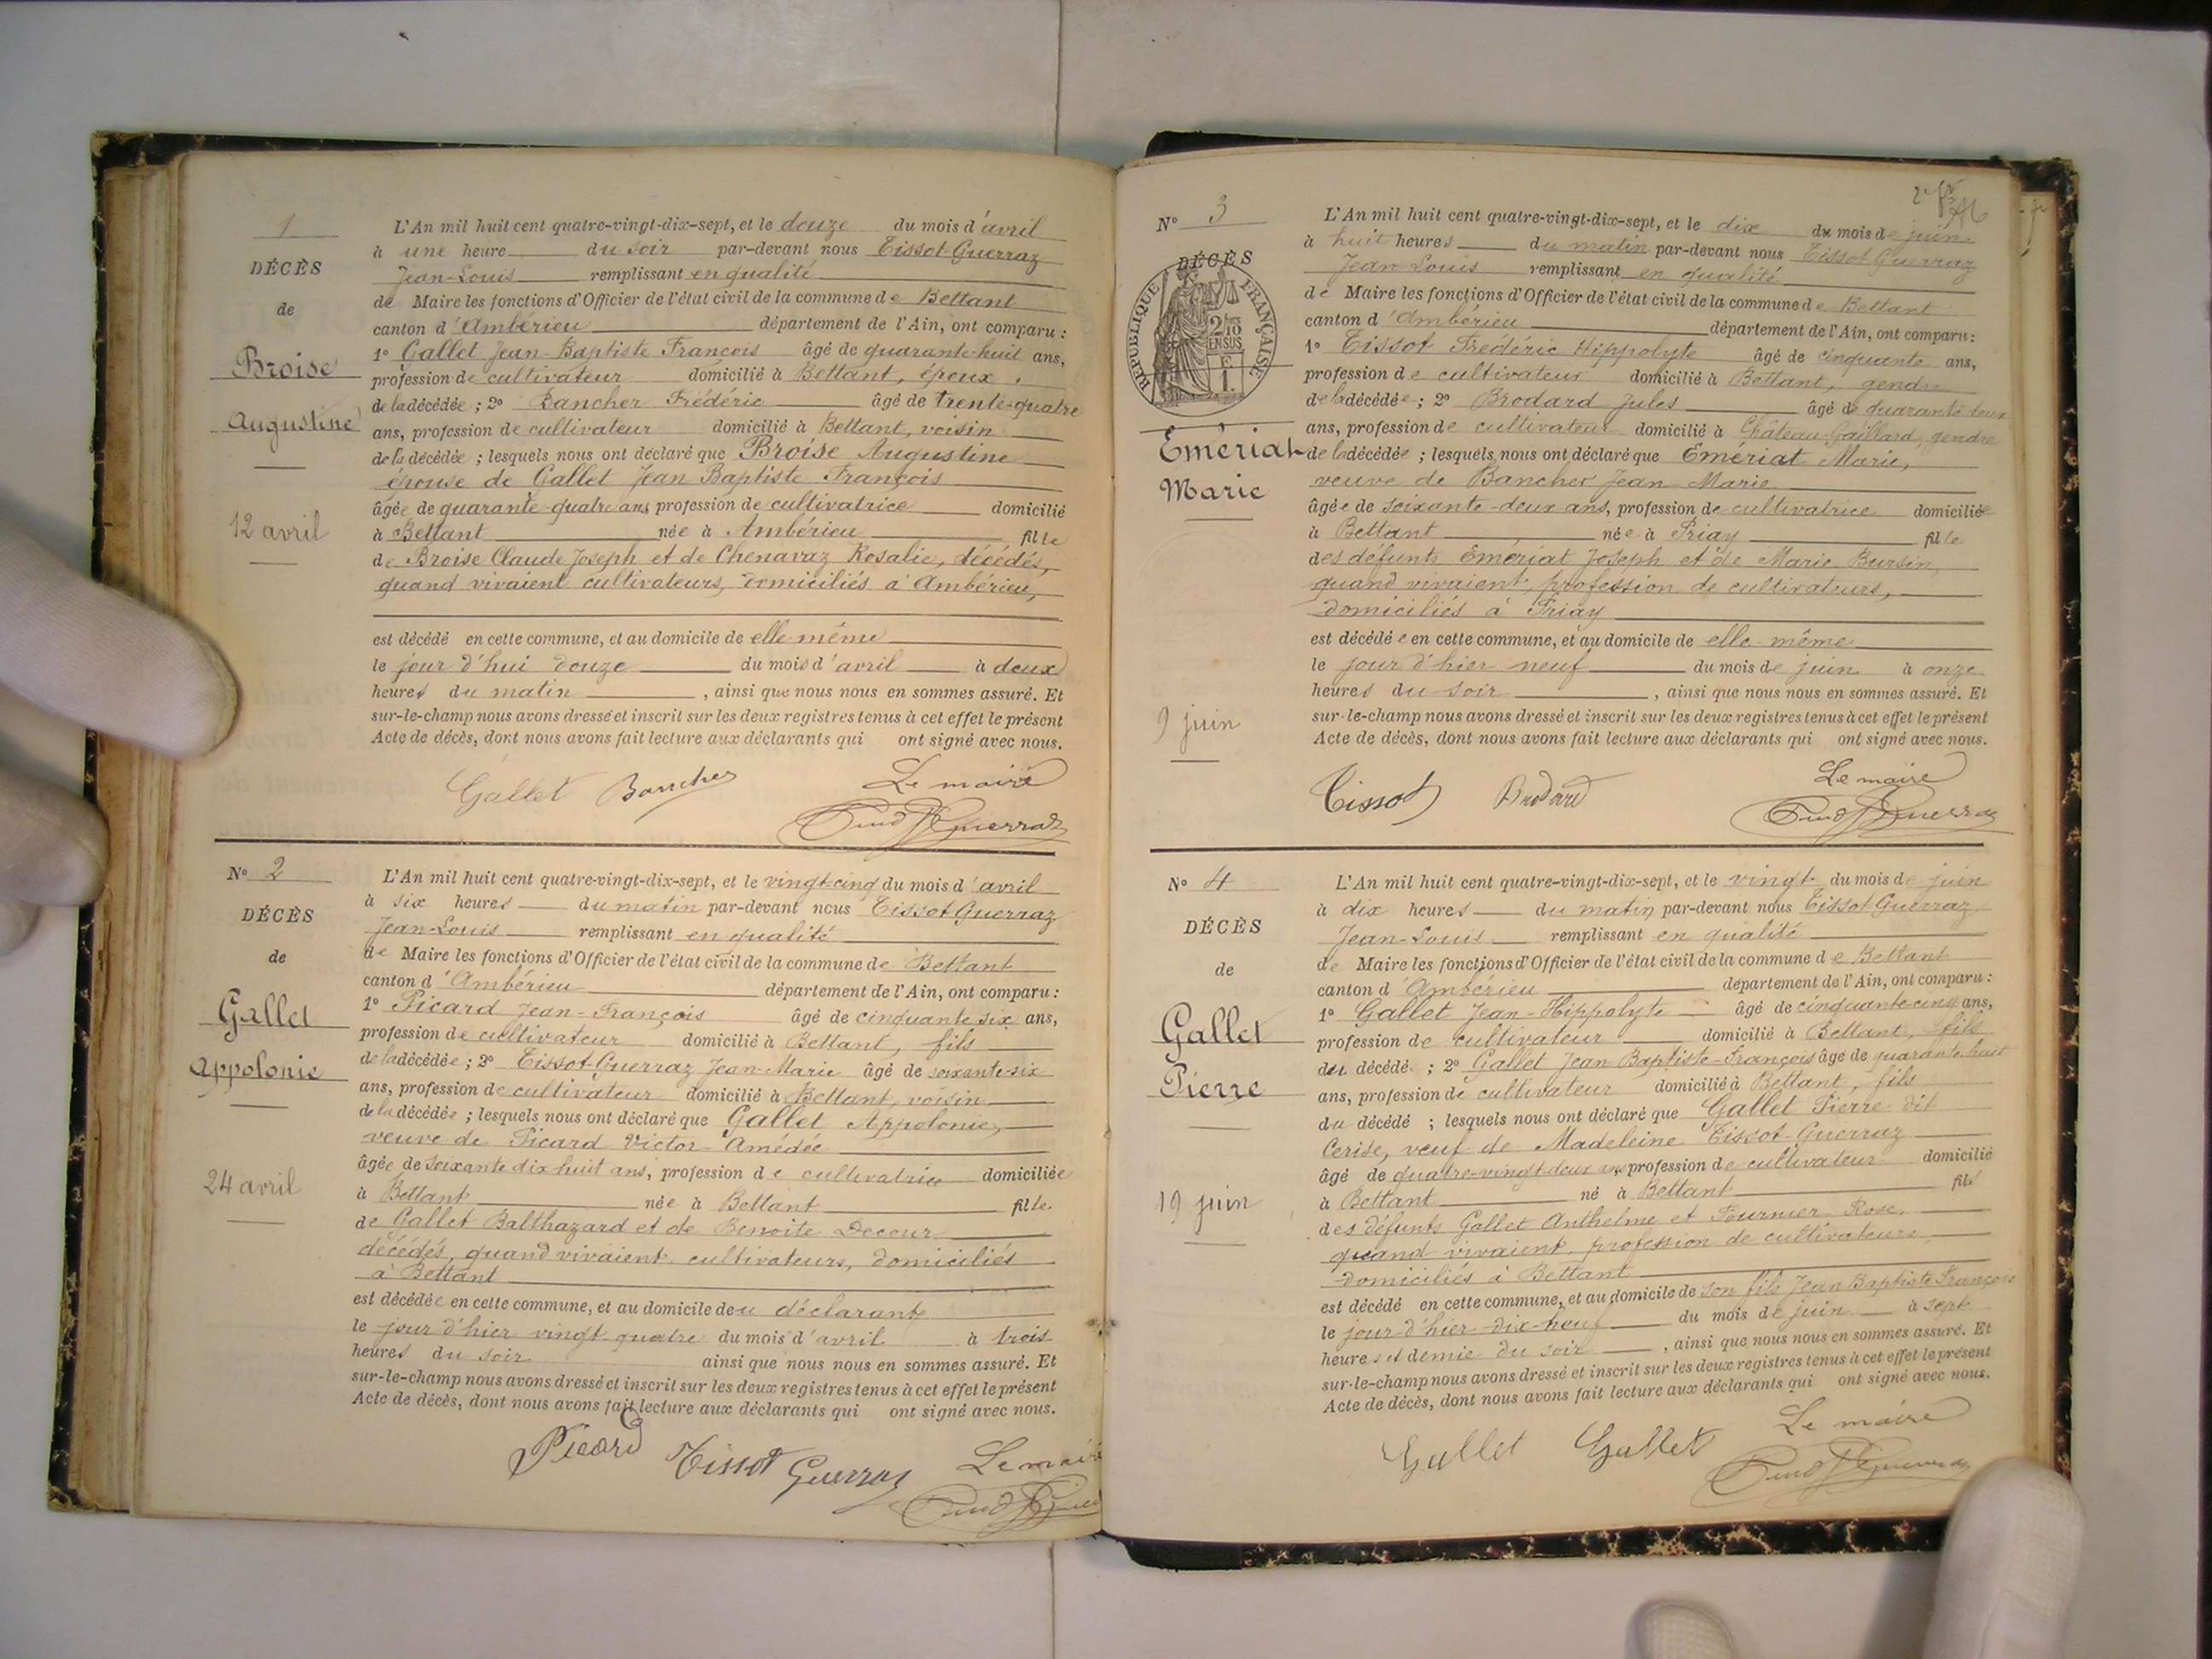 1
DÉCÈS
de
Broise
Augustine
12 avril
L'An mil huit cent quatre-vingt-dix-sept, et le douze du mois d'avril
à une heure du soir par-devant nous Tissot-Guerraz
Jean-Louis remplissant en qualité
de Maire les fonctions d'Officier de l'état civil de la commune de Bettant
canton d'Ambérieu département de l'Ain, ont comparu :
1º Gallet Jean-Baptiste François âgé de quarante-huit ans,
profession de cultivateur domicilié à Bettant, époux
de la décédée ; 2º Bancher Frédéric âgé de trente-quatre
ans, profession de cultivateur domicilié à Bettant, voisin
de la décédée ; lesquels nous ont déclaré que Broise Augustine
épouse de Gallet Jean Baptiste François
âgée de quarante-quatre ans profession de cultivatrice domicilié
à Bettant née à Ambérieu fille
de Broise Claude Joseph et de Chenavaz Rosalie, décédés,
quand vivaient cultivateurs, domiciliés à Ambérieu,
est décédé en cette commune, et au domicile de elle-même
le jour d'hui douze du mois d'avril à deux
heures du matin , ainsi que nous nous en sommes assuré. Et
sur-le-champ nous avons dressé et inscrit sur les deux registres tenus à cet effet le présent
Acte de décès, dont nous avons fait lecture aux déclarants qui ont signé avec nous.
Gallet Bancher Le maire
Nº 2
DÉCÈS
de
Gallet
Appolonie
24 avril
L'An mil huit cent quatre-vingt-dix-sept, et le vingt-cinq du mois d'avril
à six heures du matin par-devant nous Tissot-Guerraz
Jean-Louis remplissant en qualité
de Maire les fonctions d'Officier de l'état civil de la commune de Bettant
canton d'Ambérieu département de l'Ain, ont comparu :
1º Picard Jean-François âgé de cinquante six ans,
profession de cultivateur domicilié à Bettant, fils
de la décédée ; 2º Tissot-Guerraz Jean-Marie âgé de soixante-six
ans, profession de cultivateur domicilié à Bettant, voisin
de la décédée ; lesquels nous ont déclaré que Gallet Appolonie,
veuve de Picard Victor-Amédée
âgée de soixante dix huit ans, profession de cultivatrice domiciliée
à Bettant née à Bettant fille
de Gallet Balthazard et de Benoite Decour
décédés, quand vivaient cultivateurs, domiciliés
à Bettant
est décédée en cette commune, et au domicile du déclarant
le jour d'hier vingt quatre du mois d'avril à trois
heures du soir ainsi que nous nous en sommes assuré. Et
sur-le-champ nous avons dressé et inscrit sur les deux registres tenus à cet effet le présent
Acte de décès, dont nous avons fait lecture aux déclarants qui ont signé avec nous.
Picard Tissot Guerraz Le maire
Nº 3
DÉCÈS
RÉPUBLIQUE FRANÇAISE
2/10
EN SUS
E
1.
Emériat
Marie
9 juin
L'An mil huit cent quatre-vingt-dix-sept, et le dix du mois de juin
à huit heures du matin par-devant nous Tissot Guerraz
Jean Louis remplissant en qualité
de Maire les fonctions d'Officier de l'état civil de la commune de Bettant
canton d'Ambérieu département de l'Ain, ont comparu :
1º Tissot Frédéric Hippolyte âgé de cinquante ans,
profession de cultivateur domicilié à Bettant, gendre
de la décédée ; 2º Brodard Jules âgé de quarante deux
ans, profession de cultivateur domicilié à Château-Gaillard, gendre
de la décédée ; lesquels nous ont déclaré que Emériat Marie,
veuve de Bancher Jean-Marie
âgée de soixante-deux ans, profession de cultivatrice domiciliée
à Bettant née à Priay fille
des défunts Emériat Joseph et de Marie Bursin,
quand vivaient, profession de cultivateurs,
domiciliés à Priay
est décédée en cette commune, et au domicile de elle-même
le jour d'hier neuf du mois de juin à onze
heures du soir , ainsi que nous nous en sommes assuré. Et
sur-le-champ nous avons dressé et inscrit sur les deux registres tenus à cet effet le présent
Acte de décès, dont nous avons fait lecture aux déclarants qui ont signé avec nous.
Tissot Brodard Le maire
Nº 4
DÉCÈS
de
Gallet
Pierre
19 juin
L'An mil huit cent quatre-vingt-dix-sept, et le vingt du mois de juin
à dix heures du matin par-devant nous Tissot Guerraz
Jean-Louis remplissant en qualité
de Maire les fonctions d'Officier de l'état civil de la commune de Bettant
canton d'Ambérieu département de l'Ain, ont comparu :
1º Gallet Jean-Hippolyte âgé de cinquante-cinq ans,
profession de cultivateur domicilié à Bettant, fils
du décédé ; 2º Gallet Jean Baptiste-François âgé de quarante huit
ans, profession de cultivateur domicilié à Bettant, fils
du décédé ; lesquels nous ont déclaré que Gallet Pierre dit
Cerise, veuf de Madeleine Tissot-Guerraz
âgé de quatre-vingt-deux ans profession de cultivateur domicilié
à Bettant né à Bettant fils
des défunts Gallet Anthelme et Fournier Rose,
quand vivaient, profession de cultivateurs,
domiciliés à Bettant
est décédé en cette commune, et au domicile de son fils Jean Baptiste François
le jour d'hier dix-neuf du mois de juin à sept
heures et demie du soir , ainsi que nous nous en sommes assuré. Et
sur-le-champ nous avons dressé et inscrit sur les deux registres tenus à cet effet le présent
Acte de décès, dont nous avons fait lecture aux déclarants qui ont signé avec nous.
Gallet Gallet Le maire